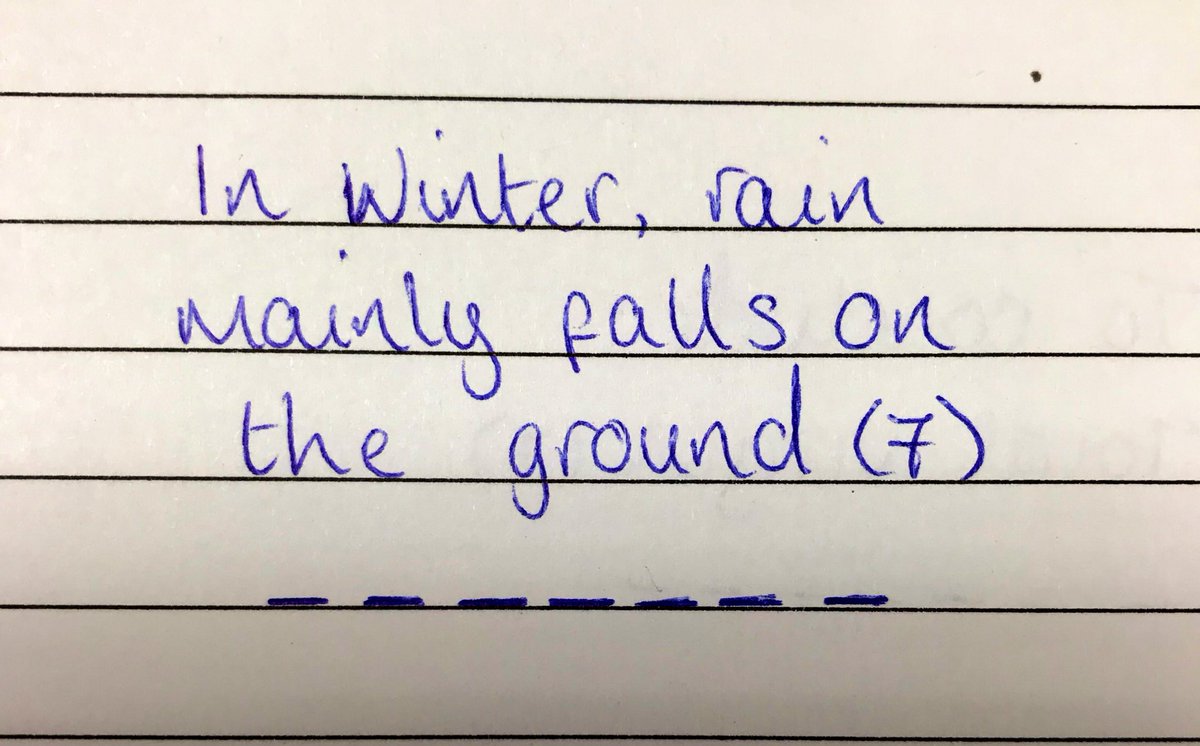 In Winter, rain
mainly falls on
the ground (7)
_ _ _ _ _ _ _